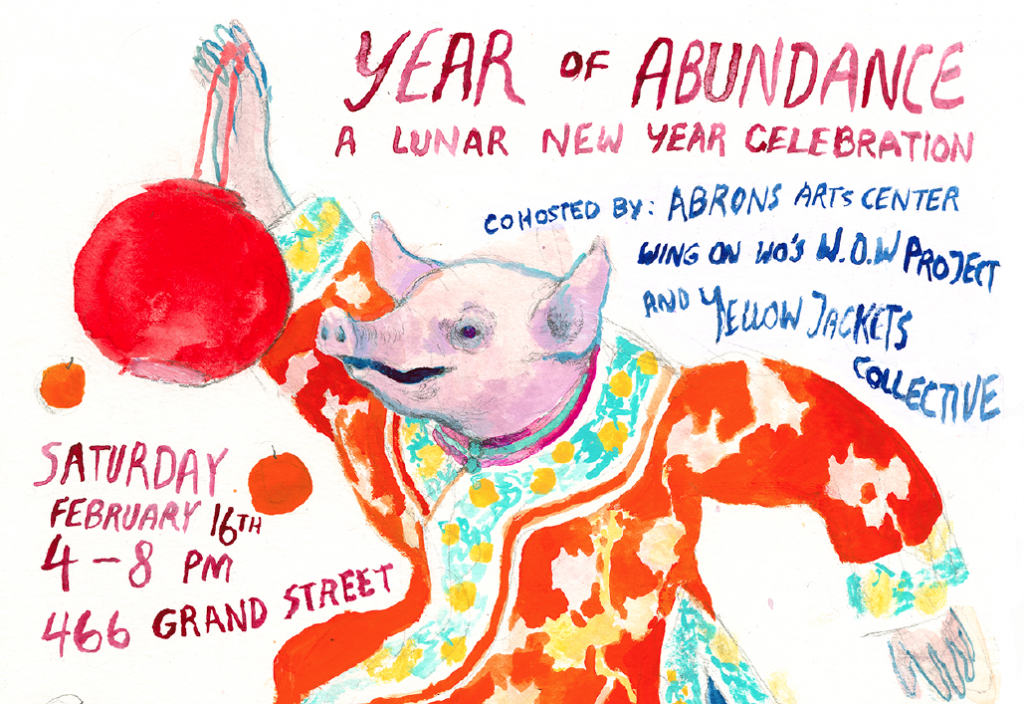 YEAR OF ABUNDANCE
A LUNAR NEW YEAR CELEBRATION
COHOSTED BY: ABRONS ARTS CENTER
WING ON WO'S W.O.W PROJECT
AND YELLOW JACKETS
COLLECTIVE
SATURDAY
FEBRUARY 16TH
4 – 8 PM
466 GRAND STREET